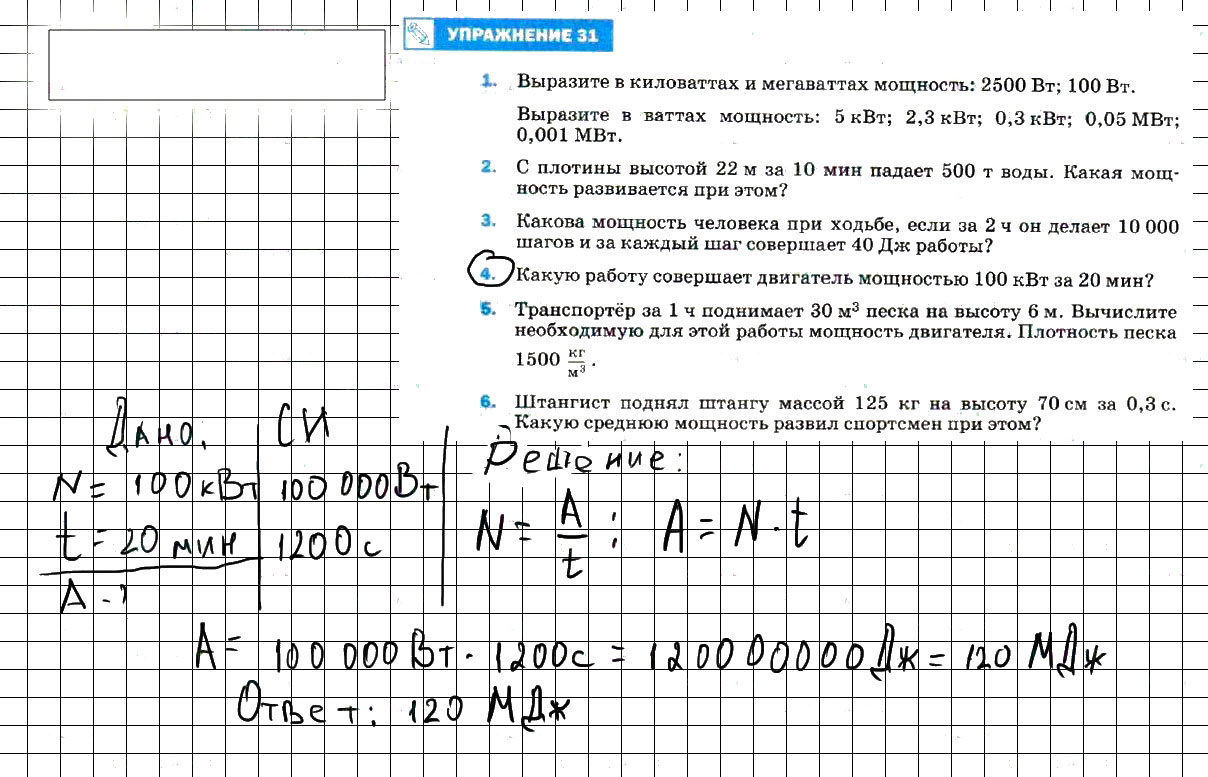 УПРАЖНЕНИЕ 31
1. Выразите в киловаттах и мегаваттах мощность: 2500 Вт; 100 Вт.
Выразите в ваттах мощность: 5 кВт; 2,3 кВт; 0,3 кВт; 0,05 МВт;
0,001 МВт.
2. С плотины высотой 22 м за 10 мин падает 500 т воды. Какая мощ-
ность развивается при этом?
3. Какова мощность человека при ходьбе, если за 2 ч он делает 10 000
шагов и за каждый шаг совершает 40 Дж работы?
4. Какую работу совершает двигатель мощностью 100 кВт за 20 мин?
5. Транспортёр за 1 ч поднимает 30 м³ песка на высоту 6 м. Вычислите
необходимую для этой работы мощность двигателя. Плотность песка
1500 кг/м³.
6. Штангист поднял штангу массой 125 кг на высоту 70 см за 0,3 с.
Какую среднюю мощность развил спортсмен при этом?
Дано: СИ
N = 100 кВт 100 000 Вт
t = 20 мин 1200 с
A - ?
Решение:
N = A/t ; A = N · t
A = 100 000 Вт · 1200 с = 120000000 Дж = 120 МДж
Ответ: 120 МДж